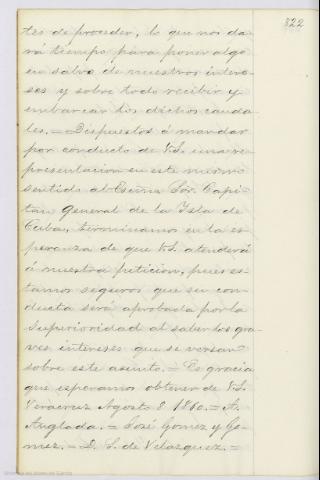 322
tes de proceder, lo que nos da-
rá tiempo para poner algo
en salvo de nuestros intere-
ses y sobre todo recibir y
embarcar los dichos cauda-
les. = Dispuestos á mandar
por conducto de V.S. una re-
presentacion en este mismo
sentido al Escmo Sor. Capi-
tan General de la Ysla de
Cuba, terminamos en la es-
peranza de que V.S. atenderá
á nuestra peticion, pues es-
tamos seguros que su con-
ducta será aprobada por la
Superioridad al saber los gra-
ves intereses que se versan
sobre este asunto. = Es gracia
que esperamos obtener de V.S.
Veracruz Agosto 8 1860. = A.
Anglada. = José Gomez y Go-
mez. = D. S. de Velazquez. =